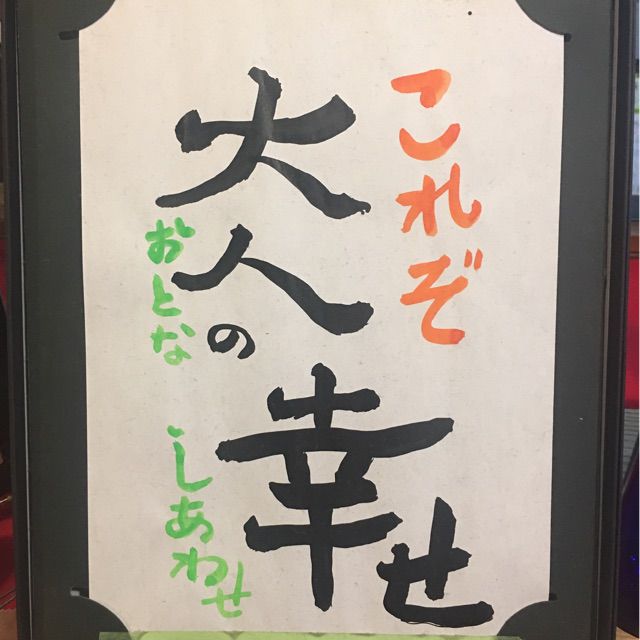 これぞ
大人の
幸せ
おとな
しあわせ